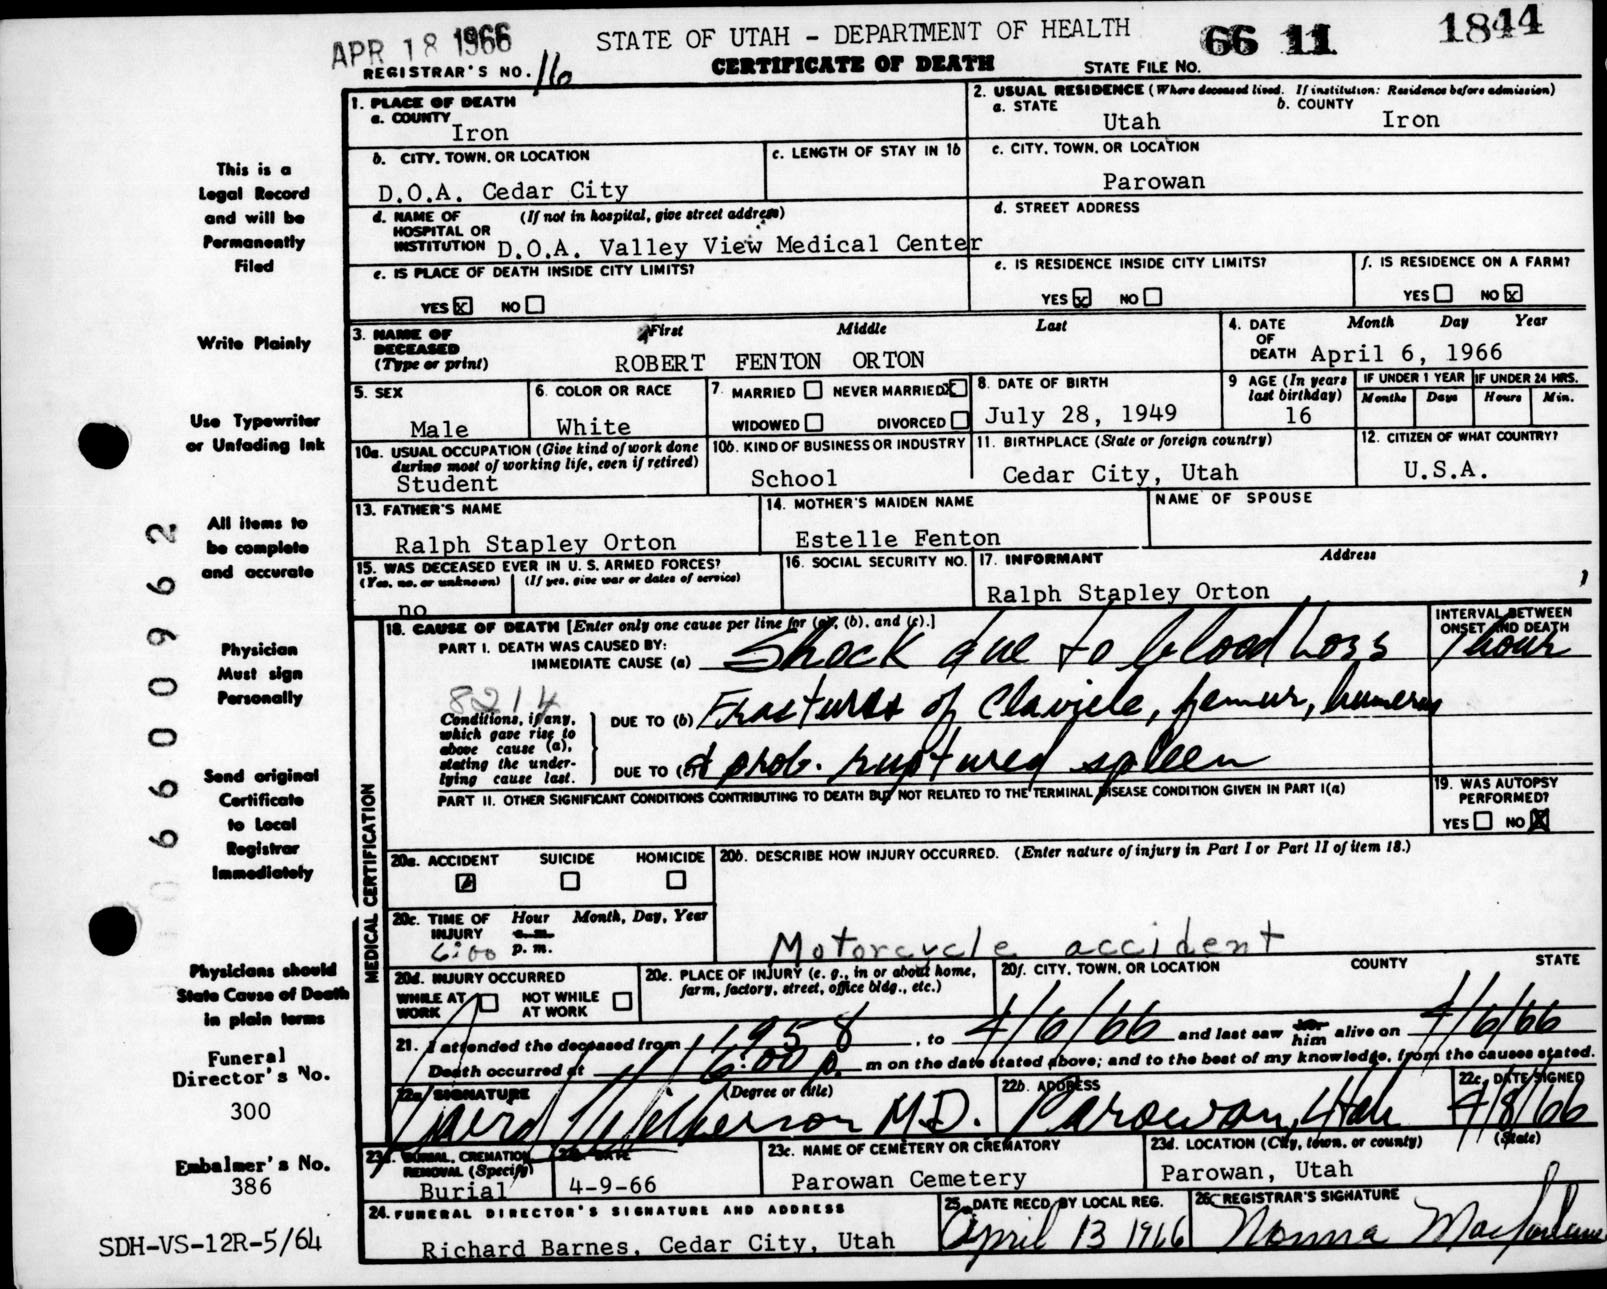 APR 18 1966
STATE OF UTAH - DEPARTMENT OF HEALTH
66 11 1844
REGISTRAR'S NO. 116
CERTIFICATE OF DEATH
STATE FILE NO.
This is a
Legal Record
and will be
Permanently
Filed
Write Plainly
Use Typewriter
or Unfading Ink
All items to
be complete
and accurate
Physician
Must sign
Personally
Send original
Certificate
to Local
Registrar
Immediately
Physicians should
State Cause of Death
in plain terms
Funeral
Director's No.
300
Embalmer's No.
386
SDH-VS-12R-5/64
06600962
1. PLACE OF DEATH
a. COUNTY
Iron
2. USUAL RESIDENCE (Where deceased lived. If institution: Residence before admission)
a. STATE b. COUNTY
Utah Iron
b. CITY, TOWN, OR LOCATION
c. LENGTH OF STAY IN 1b
c. CITY, TOWN, OR LOCATION
D.O.A. Cedar City
Parowan
d. NAME OF (If not in hospital, give street address)
HOSPITAL OR
INSTITUTION D.O.A. Valley View Medical Center
d. STREET ADDRESS
e. IS PLACE OF DEATH INSIDE CITY LIMITS?
YES x NO
e. IS RESIDENCE INSIDE CITY LIMITS?
YES x NO
f. IS RESIDENCE ON A FARM?
YES NO x
3. NAME OF First Middle Last
DECEASED
(Type or print) ROBERT FENTON ORTON
4. DATE Month Day Year
OF
DEATH April 6, 1966
5. SEX
Male
6. COLOR OR RACE
White
7. MARRIED NEVER MARRIED x
WIDOWED DIVORCED
8. DATE OF BIRTH
July 28, 1949
9 AGE (In years
last birthday)
16
IF UNDER 1 YEAR IF UNDER 24 HRS.
Months Days Hours Min.
10a. USUAL OCCUPATION (Give kind of work done
during most of working life, even if retired)
Student
10b. KIND OF BUSINESS OR INDUSTRY
School
11. BIRTHPLACE (State or foreign country)
Cedar City, Utah
12. CITIZEN OF WHAT COUNTRY?
U.S.A.
13. FATHER'S NAME
Ralph Stapley Orton
14. MOTHER'S MAIDEN NAME
Estelle Fenton
NAME OF SPOUSE
15. WAS DECEASED EVER IN U. S. ARMED FORCES?
(Yes, no, or unknown) (If yes, give war or dates of service)
no
16. SOCIAL SECURITY NO.
17. INFORMANT Address
Ralph Stapley Orton
MEDICAL CERTIFICATION
18. CAUSE OF DEATH [Enter only one cause per line for (a), (b), and (c).]
INTERVAL BETWEEN
ONSET AND DEATH
PART I. DEATH WAS CAUSED BY:
IMMEDIATE CAUSE (a) Shock due to blood loss 1 hour
8214
Conditions, if any,
which gave rise to
above cause (a),
stating the under-
lying cause last.
DUE TO (b) Fractures of Clavicle, femur, humerus
DUE TO (c) & prob. ruptured spleen
PART II. OTHER SIGNIFICANT CONDITIONS CONTRIBUTING TO DEATH BUT NOT RELATED TO THE TERMINAL DISEASE CONDITION GIVEN IN PART I(a)
19. WAS AUTOPSY
PERFORMED?
YES NO X
20a. ACCIDENT SUICIDE HOMICIDE
20b. DESCRIBE HOW INJURY OCCURRED. (Enter nature of injury in Part I or Part II of item 18.)
Motorcycle accident
20c. TIME OF Hour Month, Day, Year
INJURY a.m.
6:00 p. m.
20d. INJURY OCCURRED
WHILE AT NOT WHILE
WORK AT WORK
20e. PLACE OF INJURY (e. g., in or about home,
farm, factory, street, office bldg., etc.)
20f. CITY, TOWN, OR LOCATION COUNTY STATE
21. I attended the deceased from 1958, to 4/6/66 and last saw her him alive on 4/6/66
Death occurred at 6:00 p. m on the date stated above; and to the best of my knowledge, from the causes stated.
22a. SIGNATURE (Degree or title)
M.D.
22b. ADDRESS
Parowan, Utah
22c. DATE SIGNED
4/8/66
23a. BURIAL, CREMATION
REMOVAL (Specify)
Burial
23b. DATE
4-9-66
23c. NAME OF CEMETERY OR CREMATORY
Parowan Cemetery
23d. LOCATION (City, town, or county) (State)
Parowan, Utah
24. FUNERAL DIRECTOR'S SIGNATURE AND ADDRESS
Richard Barnes, Cedar City, Utah
25. DATE RECD. BY LOCAL REG.
April 13 1966
26. REGISTRAR'S SIGNATURE
Nonna Macfarlane